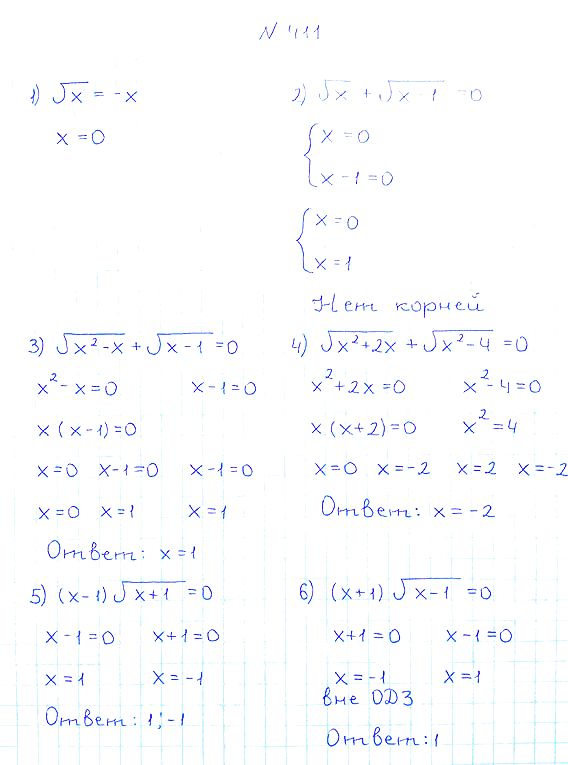 N 411
1) √x = -x
x = 0
2) √x + √x-1 = 0
{ x = 0
x - 1 = 0
{ x = 0
x = 1
Нет корней
3) √x²-x + √x-1 = 0
x² - x = 0 x - 1 = 0
x (x-1) = 0
x = 0 x-1 = 0 x-1 = 0
x = 0 x = 1 x = 1
Ответ: x = 1
4) √x²+2x + √x²-4 = 0
x² + 2x = 0 x² - 4 = 0
x (x+2) = 0 x² = 4
x = 0 x = -2 x = 2 x = -2
Ответ: x = -2
5) (x-1) √x+1 = 0
x - 1 = 0 x + 1 = 0
x = 1 x = -1
Ответ: 1; -1
6) (x+1) √x-1 = 0
x+1 = 0 x - 1 = 0
x = -1 x = 1
вне ОДЗ
Ответ: 1